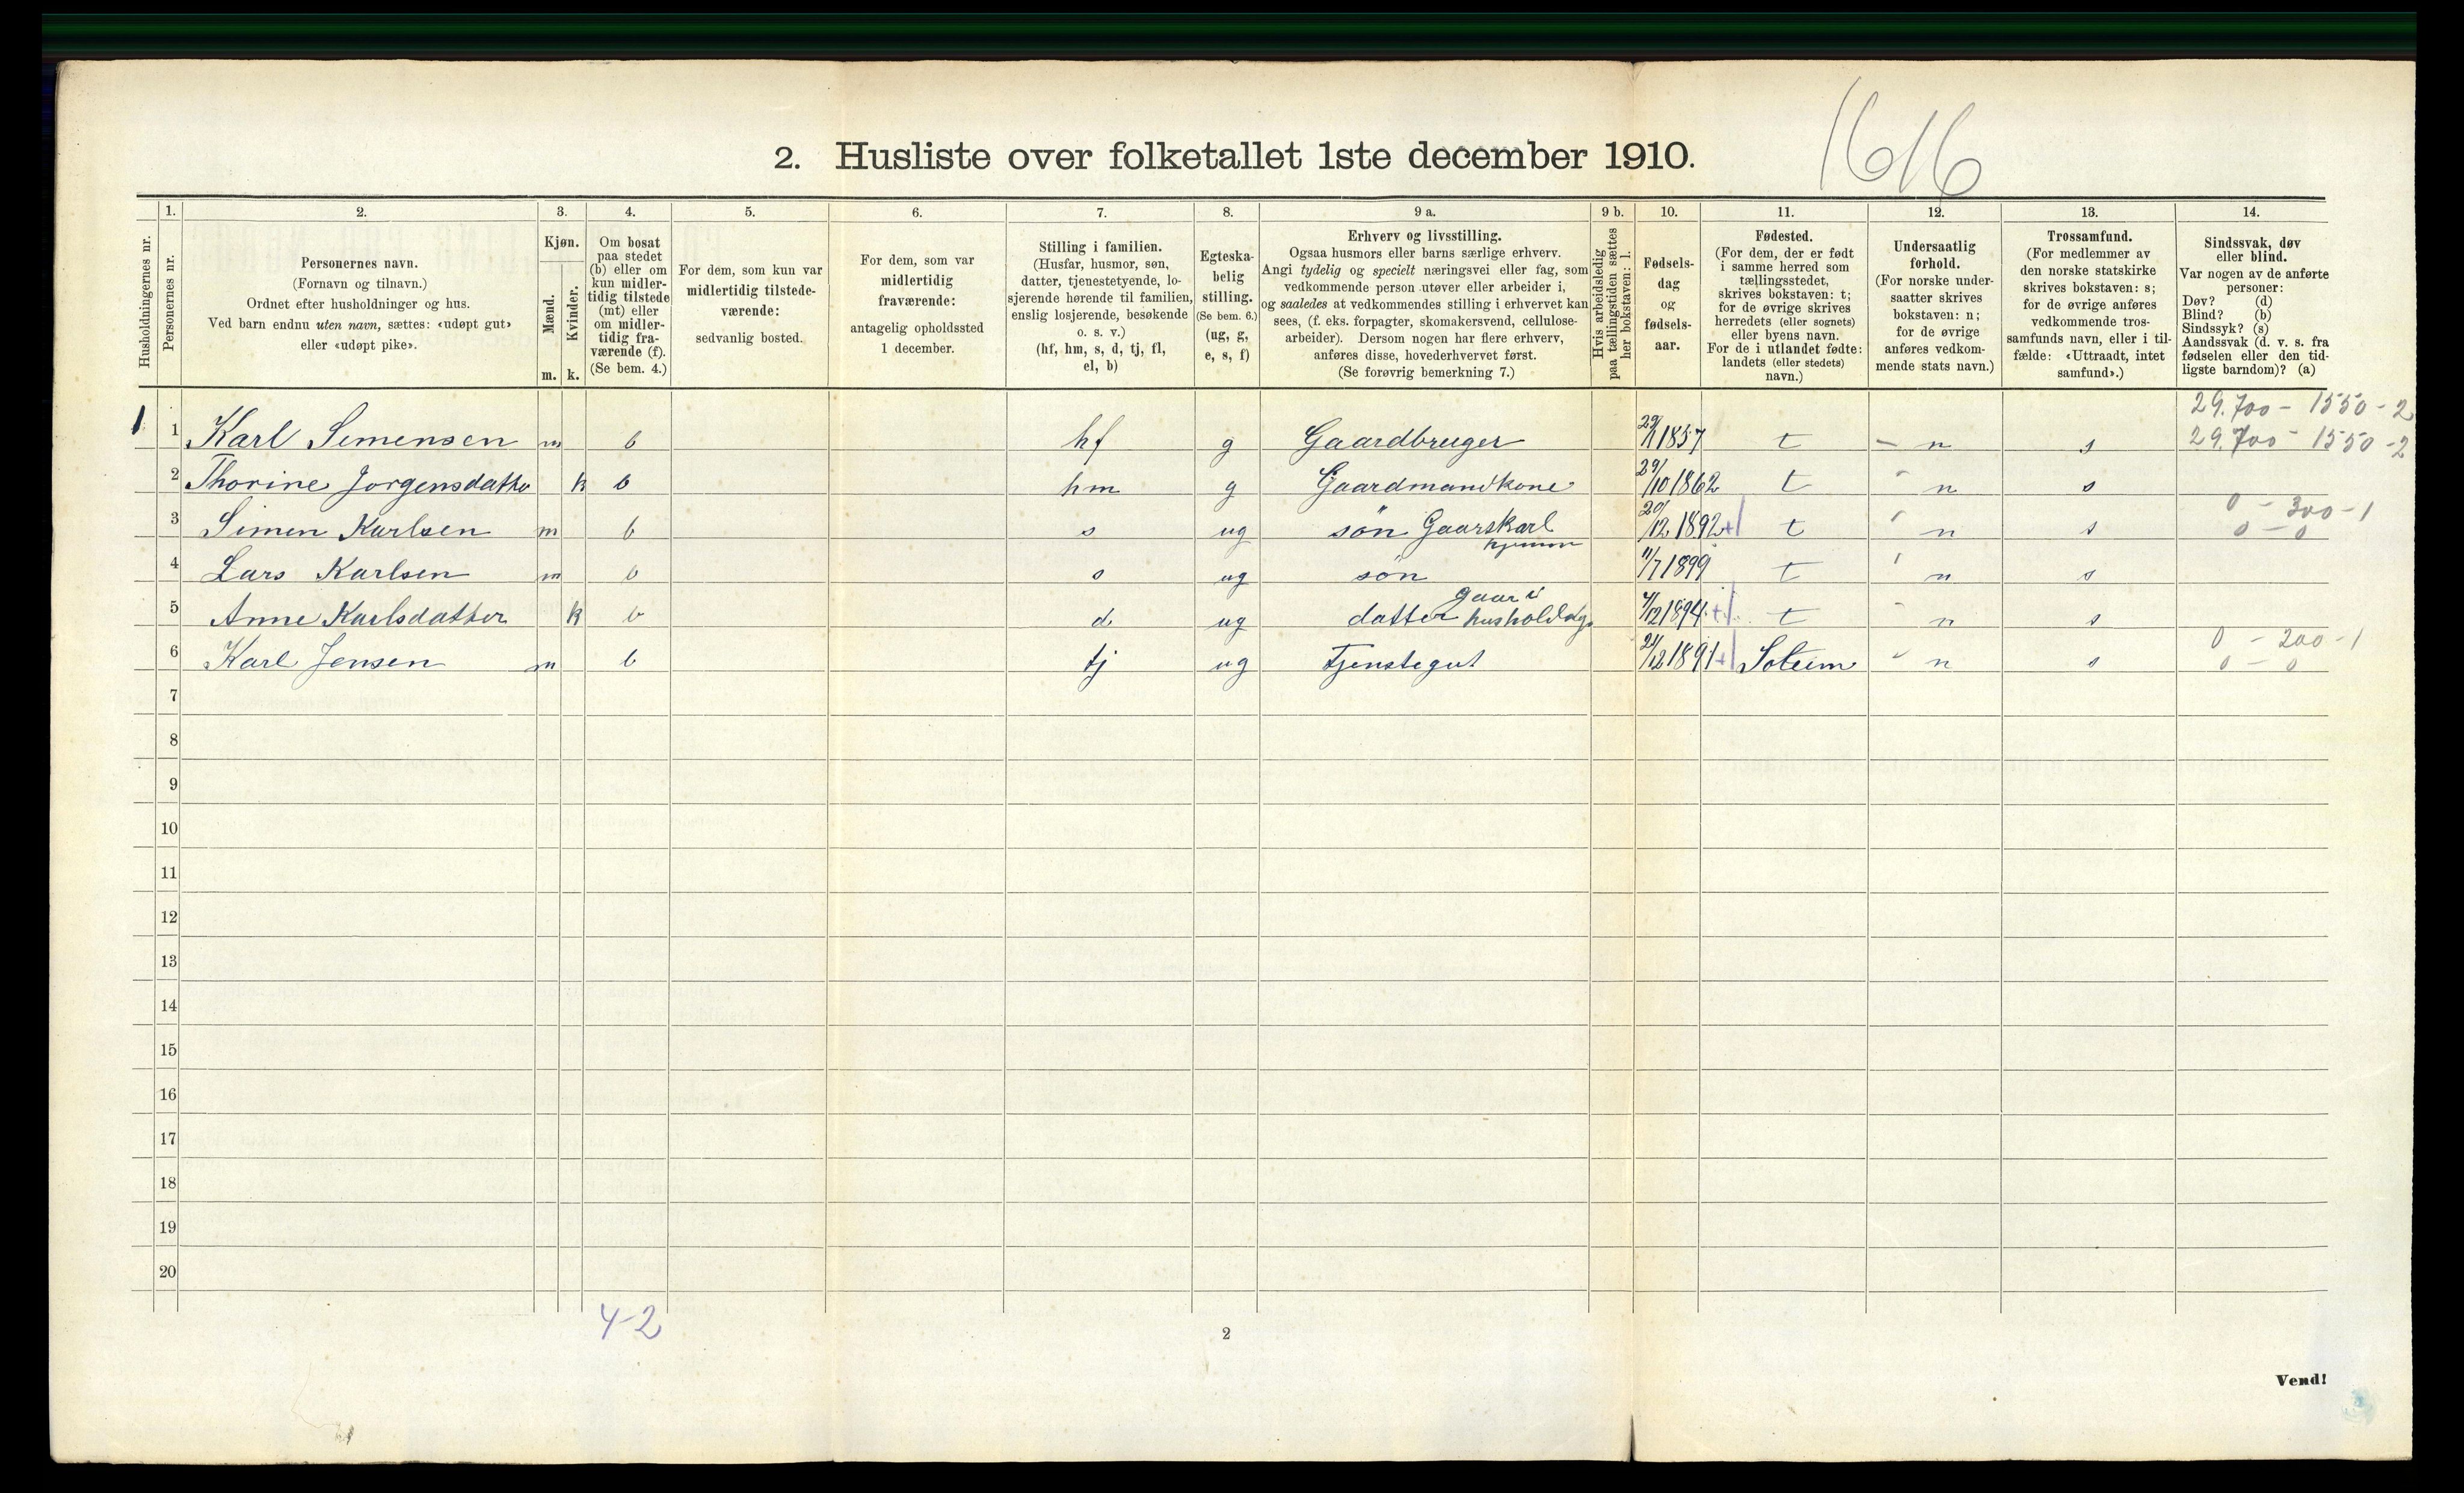 1616
2. Husliste over folketallet 1ste december 1910.
Husholdningernes nr.
1. Personernes nr.
2. Personernes navn.
(Fornavn og tilnavn.)
Ordnet efter husholdninger og hus.
Ved barn endnu uten navn, sættes: «udøpt gut»
eller «udøpt pike».
3. Kjøn.
Mænd. m.
Kvinder. k.
4. Om bosat
paa stedet
(b) eller om
kun midler-
tidig tilstede
(mt) eller
om midler-
tidig fra-
værende (f).
(Se bem. 4.)
5. For dem, som kun var
midlertidig tilstede-
værende:
sedvanlig bosted.
6. For dem, som var
midlertidig
fraværende:
antagelig opholdssted
1 december.
7. Stilling i familien.
(Husfar, husmor, søn,
datter, tjenestetyende, lo-
sjerende hørende til familien,
enslig losjerende, besøkende
o. s. v.)
(hf, hm, s, d, tj, fl,
el, b)
8. Egteska-
belig
stilling.
(Se bem. 6.)
(ug, g,
e, s, f)
9 a. Erhverv og livsstilling.
Ogsaa husmors eller barns særlige erhverv.
Angi tydelig og specielt næringsvei eller fag, som
vedkommende person utøver eller arbeider i,
og saaledes at vedkommendes stilling i erhvervet kan
sees, (f. eks. forpagter, skomakersvend, cellulose-
arbeider). Dersom nogen har flere erhverv,
anføres disse, hovederhvervet først.
(Se forøvrig bemerkning 7.)
9 b. Hvis arbeidsledig
paa tællingstiden sættes
her bokstaven: l.
10. Fødsels-
dag
og
fødsels-
aar.
11. Fødested.
(For dem, der er født
i samme herred som
tællingsstedet,
skrives bokstaven: t;
for de øvrige skrives
herredets (eller sognets)
eller byens navn.
For de i utlandet fødte:
landets (eller stedets)
navn.)
12. Undersaatlig
forhold.
(For norske under-
saatter skrives
bokstaven: n;
for de øvrige
anføres vedkom-
mende stats navn.)
13. Trossamfund.
(For medlemmer av
den norske statskirke
skrives bokstaven: s;
for de øvrige anføres
vedkommende tros-
samfunds navn, eller i til-
fælde: «Uttraadt, intet
samfund».)
14. Sindssvak, døv
eller blind.
Var nogen av de anførte
personer:
Døv? (d)
Blind? (b)
Sindssyk? (s)
Aandssvak (d. v. s. fra
fødselen eller den tid-
ligste barndom)? (a)
29.700 - 1550 - 2
1 1 Karl Simensen m b hf g Gaardbruger 29/1 1857 t - n s 29.700 - 1550 - 2
2 Thorine Jorgensdatter k b hm g Gaardmandkone 29/10 1862 t n s
0 - 300 - 1
3 Simen Karlsen m b s ug søn Gaarskarl 20/12 1892 + t n s 0 - 0
4 Lars Karlsen m b s ug søn 11/7 1899 t n s
5 Anne Karlsdatter k b d ug datter 4/12 1894 + t n s
0 - 200 - 1
6 Karl Jensen m b tj ug Tjenstegut 21/12 1891 + n s 0 - 0
7
8
9
10
11
12
13
14
15
16
17
18
19
20
4-2
2
Vend!